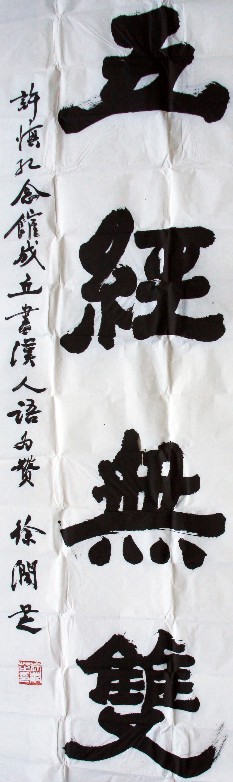 五經無雙
許慎紀念館成立書漢人語為贊 徐潤芝